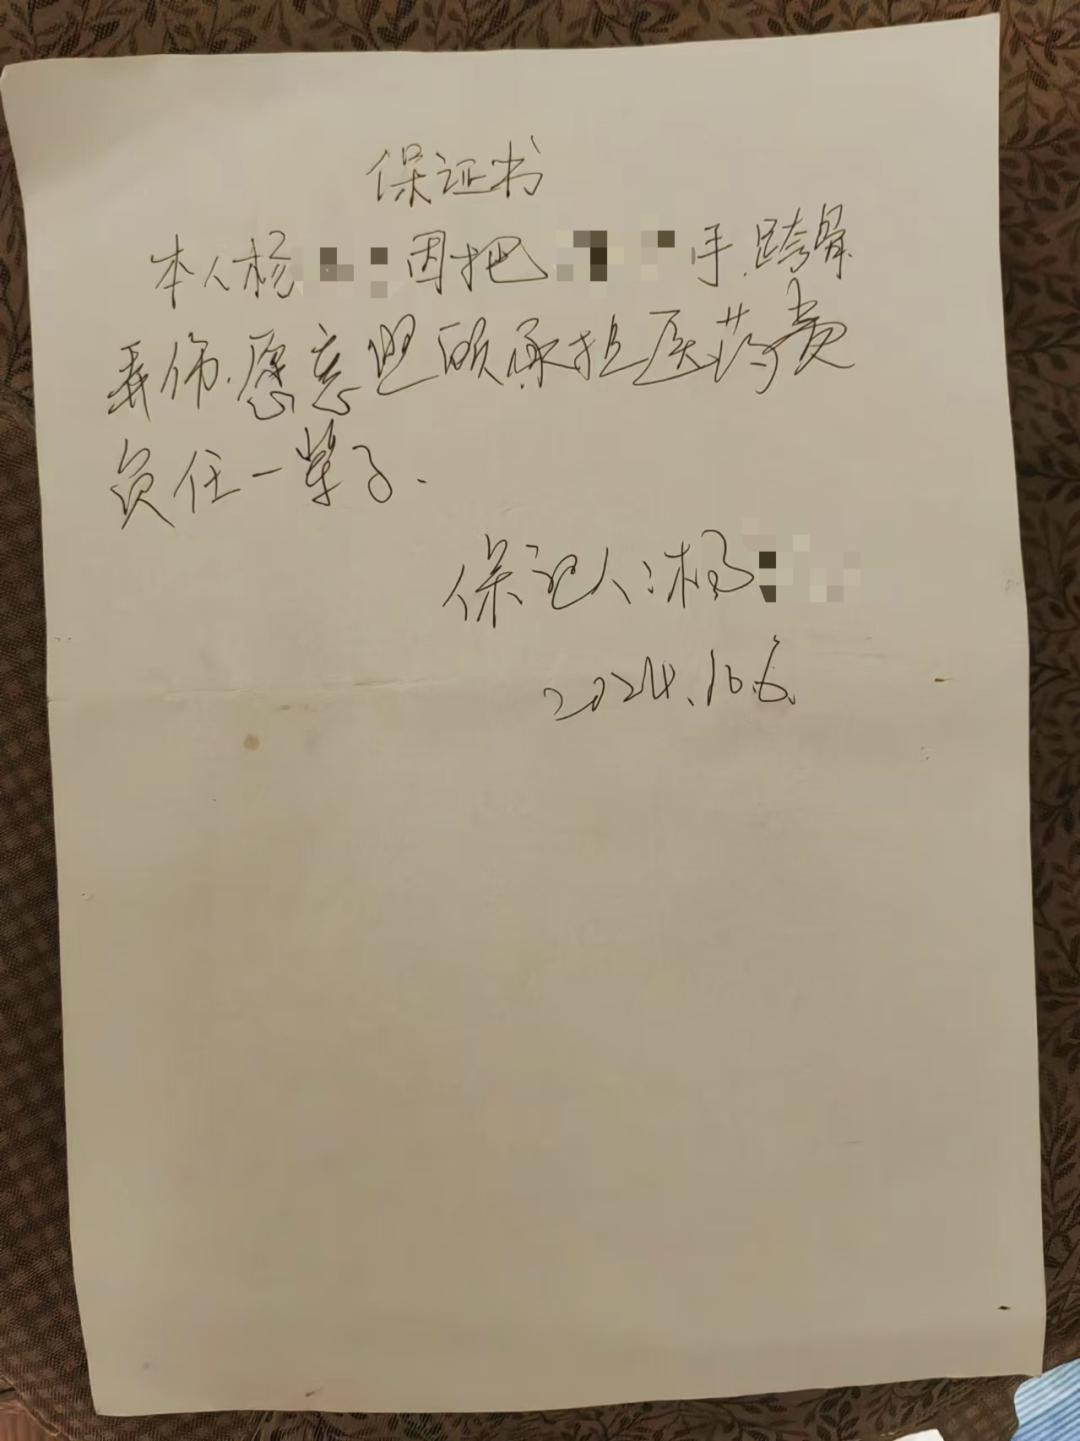 保证书
本人杨 因把 手、跨骨
弄伤.愿意 承担医药费
负任一辈子.
保证人:杨
2024.10.6.